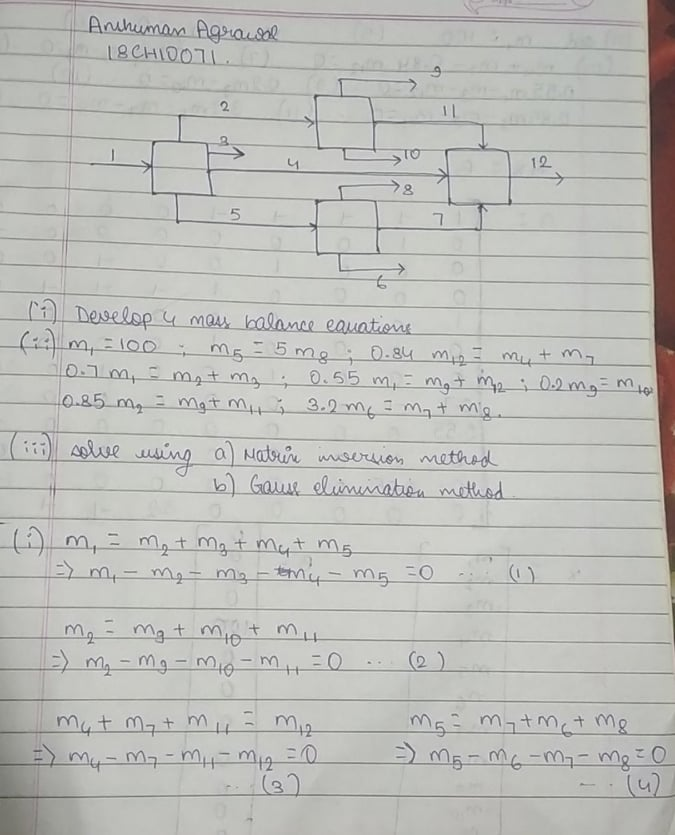 Anshuman Agrawal
18CH10071.
9
2
11
3
10
1
4
12
8
5
7
6
(i) Develop 4 mass balance equations
(ii) m₁ = 100 ; m₅ = 5 m₈ ; 0.84 m₁₂ = m₄ + m₇
0.7 m₁ = m₂ + m₃ ; 0.55 m₁ = m₉ + m₁₂ ; 0.2 m₉ = m₁₀
0.85 m₂ = m₉ + m₁₁ ; 3.2 m₆ = m₇ + m₈.
(iii) solve using a) Matrix inversion method
b) Gauss elimination method.
(i) m₁ = m₂ + m₃ + m₄ + m₅
⇒ m₁ - m₂ - m₃ - m₄ - m₅ = 0 ... (1)
m₂ = m₉ + m₁₀ + m₁₁
⇒ m₂ - m₉ - m₁₀ - m₁₁ = 0 ... (2)
m₄ + m₇ + m₁₁ = m₁₂ m₅ = m₇ + m₆ + m₈
⇒ m₄ - m₇ - m₁₁ - m₁₂ = 0 ⇒ m₅ - m₆ - m₇ - m₈ = 0
... (3) ... (4)